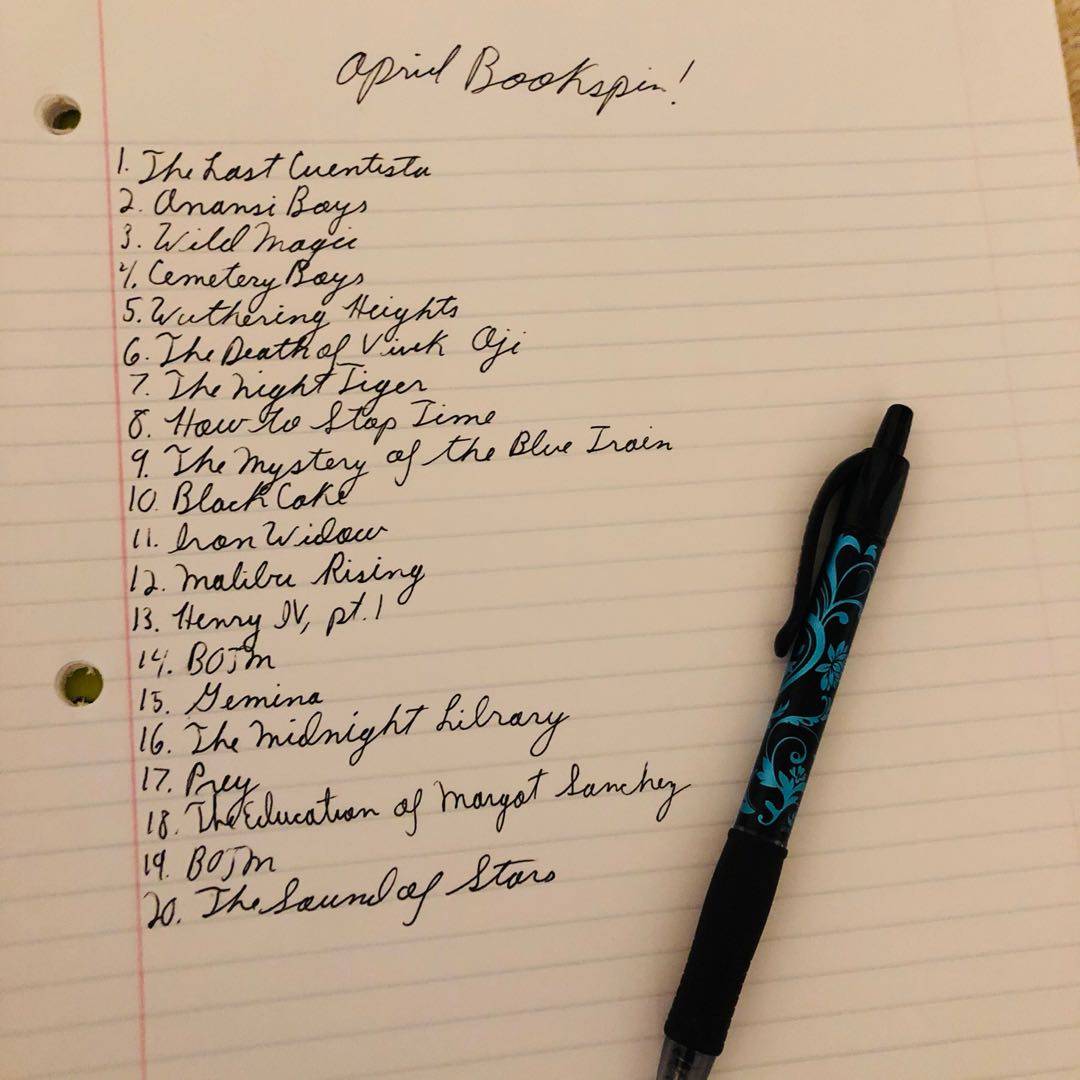 April Bookspin!
1. The Last Cuentista
2. Anansi Boys
3. Wild Magic
4. Cemetery Boys
5. Wuthering Heights
6. The Death of Vivek Oji
7. The Night Tiger
8. How to Stop Time
9. The Mystery of the Blue Train
10. Black Cake
11. Iron Widow
12. Malibu Rising
13. Henry IV, pt. 1
14. BOTM
15. Gemina
16. The Midnight Library
17. Prey
18. The Education of Margot Sanchez
19. BOTM
20. The Sound of Stars